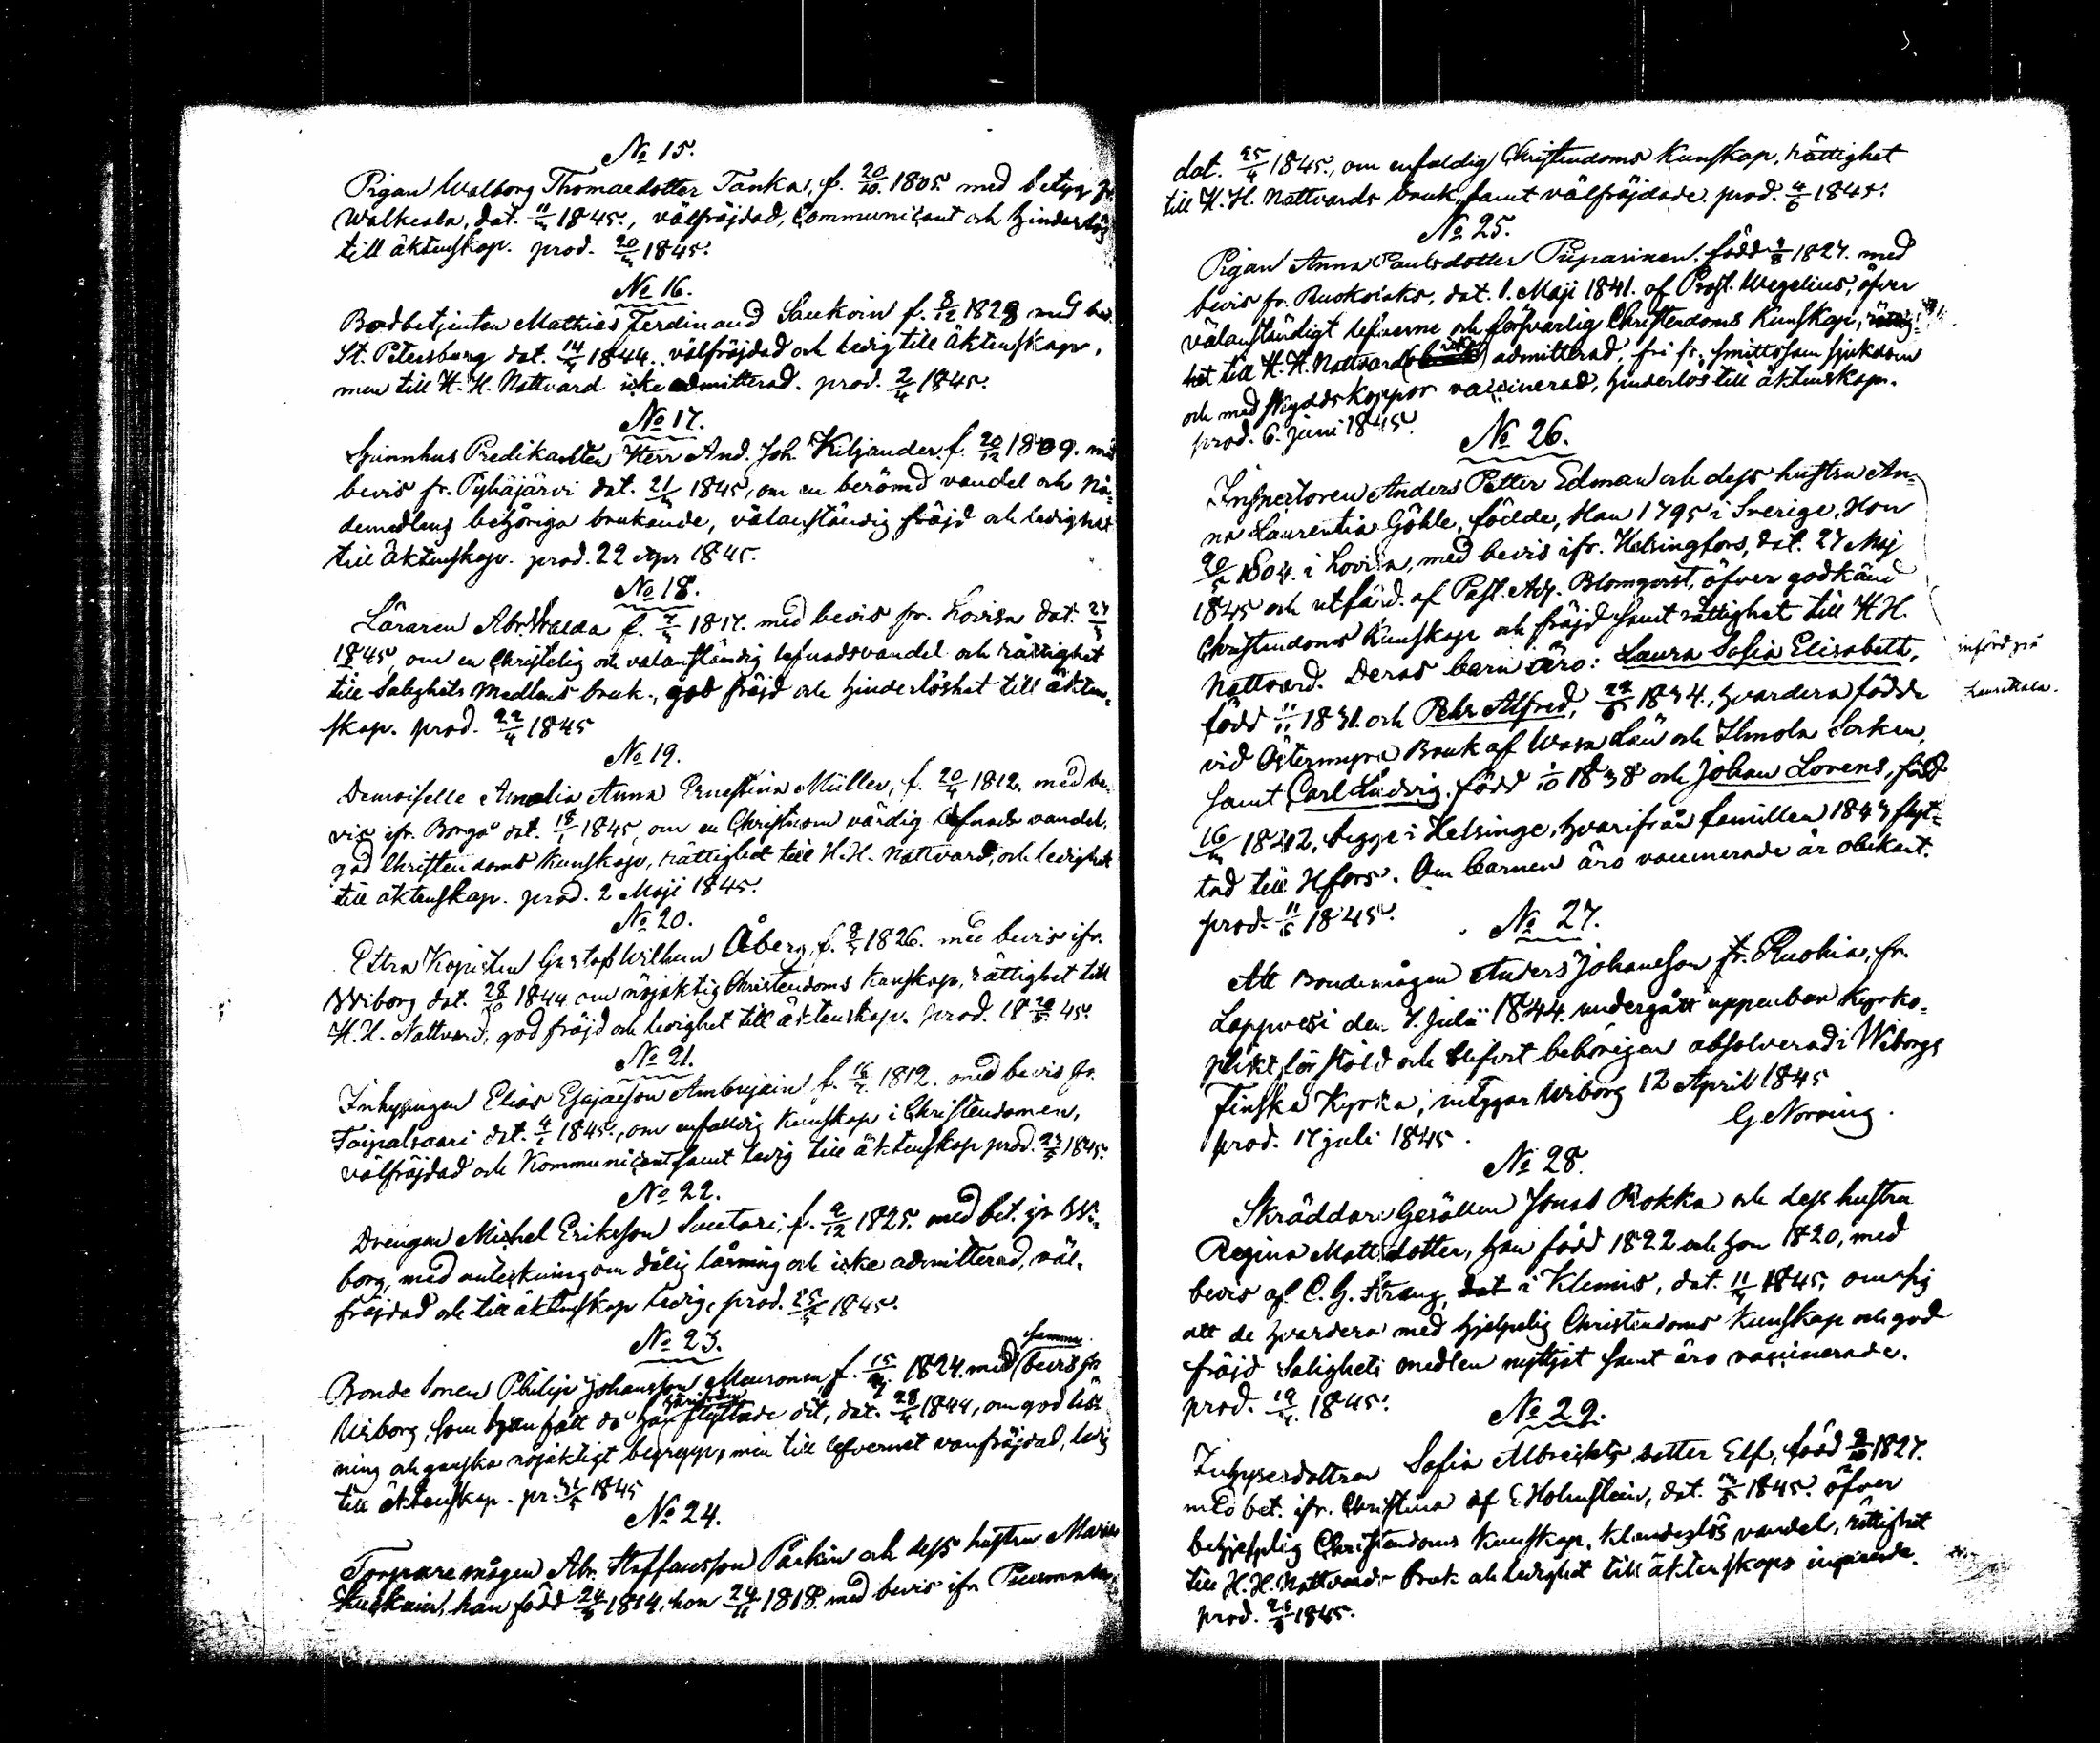 No 15.
Pigan Walborg Thomaedotter Tanka, f. 20/10. 1805. med betyg fr.
Walkeala, dat. 11/ 1845., välfräjdad, Communicant och hinderlös
till äktenskap. prod. 20/ 1845.
No 16.
Bodbetjenten Mathias Ferdinand Saukoin f. 8/12 1828 med bev.
St. Petersburg dat. 14/ 1844. välfräjdad och ledig till äktenskap,
men till H. H. Nattvard icke admitterad. prod. 2/4 1845.
No 17.
Spinnhus Predikanten Herr And. Joh. Kiljander f. 20/12 1809. med
bevis fr. Pyhäjärvi dat. 21/ 1845, om en berömd vandel och Nå-
demedlens behöriga brukande, välanständig fräjd och ledighet
till äktenskap. prod. 22 Apr 1845.
No 18.
Läraren Abr. Walda f. 1817. med bevis fr. Lovisa dat. 27/
1845, om en Christelig och välanständig lefnadsvandel och rättighet
till Salighets Medlens bruk, god fräjd och hinderlöshet till äkten-
skap. prod. 22/4 1845
No 19.
Demoiselle Amalia Anna Ernestina Müller, f. 20/4 1812. med be-
vis ifr. Borgå dat. 18/ 1845, om en Christnom värdig lefnads vandel,
god Christendoms kunskap, rättighet till H. H. Nattvard, och ledighet
till äktenskap. prod. 2 Maji 1845.
No 20.
Extra Kopisten Gustaf Wilhelm Åberg, f. 8/ 1826. med bevis ifr.
Wiborg dat. 28/10 1844 om nöjaktig Christendoms kunskap, rättighet till
H. H. Nattvard, god fräjd och ledighet till äktenskap. prod. 18 20/5 45.
No 21.
Inhysingen Elias Esajaeson Ambrijain f. 16/ 1812. med bevis fr.
Taipalsaari dat. 4/ 1845., om enfaldig kunskap i Christendomen,
välfräjdad och Kommunicant samt ledig till äktenskap prod. 23/5 1845.
No 22.
Drengen Michel Eriksson Suutari, f. 9/12 1825. med bet. fr. Wi-
borg, med anteckning om dålig läsning och icke admitterad, väl-
fräjdad och till äktenskap ledig, prod. 25/5 1845.
No 23.
Bonde sonen Philip Johansson Meuronen, f. 15/ 1824. med samma bevis fr.
Wiborg, som han fått då han härifrån flyttade dit, dat. 28/4 1844, om god läs-
ning och ganska nöjaktigt begrepp, men till lefvernet vanfräjdad, ledig
till äktenskap. pr. 31/5 1845
No 24.
Torpare mågen Abr. Staffansson Parkin och dess hustru Maria
han född 24/ 1814, hon 24/11 1818. med bevis ifr.
dat. 25/4 1845, om enfaldig Christendoms kunskap, rättighet
till H. H. Nattvards bruk, samt välfräjdade. prod. 4/6 1845.
No 25.
Pigan Anna Paulsdotter Piiparinen. född 1827. med
bevis fr. Ruokolaks, dat. 1. Maji 1841. af Prost. Wegelius, öfver
välanständigt lefverne och försvarlig Christendoms kunskap,
het till H. H. Nattvard icke admitterad, fri fr. smittosam sjukdom
och med skyddskoppor vaccinerad, hinderlös till äktenskap.
prod. 6. juni 1845.
No 26.
Inspectoren Anders Petter Edman och dess hustru An-
na Laurentia Göhle, födde, Han 1795 i Sverige, Hon
20/ 1804. i Lovisa, med bevis ifr. Helsingfors, dat. 27 Maj
1845 och utfärd. af Past. Adj. Blomqvist, öfver godkänd
Christendoms kunskap och fräjd samt rättighet till H. H.
Nattvard. Deras barn äro: Laura Sofia Elisabeth,
född 11/11 1831. och Pehr Alfred, 22/ 1834., hvardera födde
vid Östermyra Bruk af Wasa Län och Ilmola Socken,
samt Carl Ludvig, född 1/10 1838 och Johan Lorens, född
16/ 1842, begge i Helsinge, hvarifrån familien 1843 flyt-
tad till Hfors. Om barnen äro vaccinerade är obekant.
prod. 11/6 1845.
införd på
No 27.
Att Bondemågen Anders Johansson fr. fr.
Lappvesi den 7. Julii 1844. undergått uppenbar kyrko-
plikt för stöld och blifvit behörigen absolverad i Wiborgs
Finska Kyrka, intygar Wiborg 12 April 1845
G Noring.
prod. 17 juli 1845.
No 28.
Skräddare Gesällen Jonas Rokka och dess hustru
Regina Mattsdotter, han född 1822. och hon 1820, med
bevis af C. G. Strang, dat i Klemis, dat. 11/ 1845, om sig
att de hvardera med hjelpelig Christendoms kunskap och god
fräjd Salighets medlen nyttjat samt äro vaccinerade.
prod. 19/ 1845.
No 29.
Inhyserdottren Sofia Albrechts dotter Elf, född 2/10 1827.
med bet. ifr. Christina af E. Holmstein, dat. 1845. öfver
behjelplig Christendoms kunskap, klanderlös vandel, rättighet
till H. H. Nattvards bruk och ledighet till äktenskaps ingående.
prod. 26/ 1845.